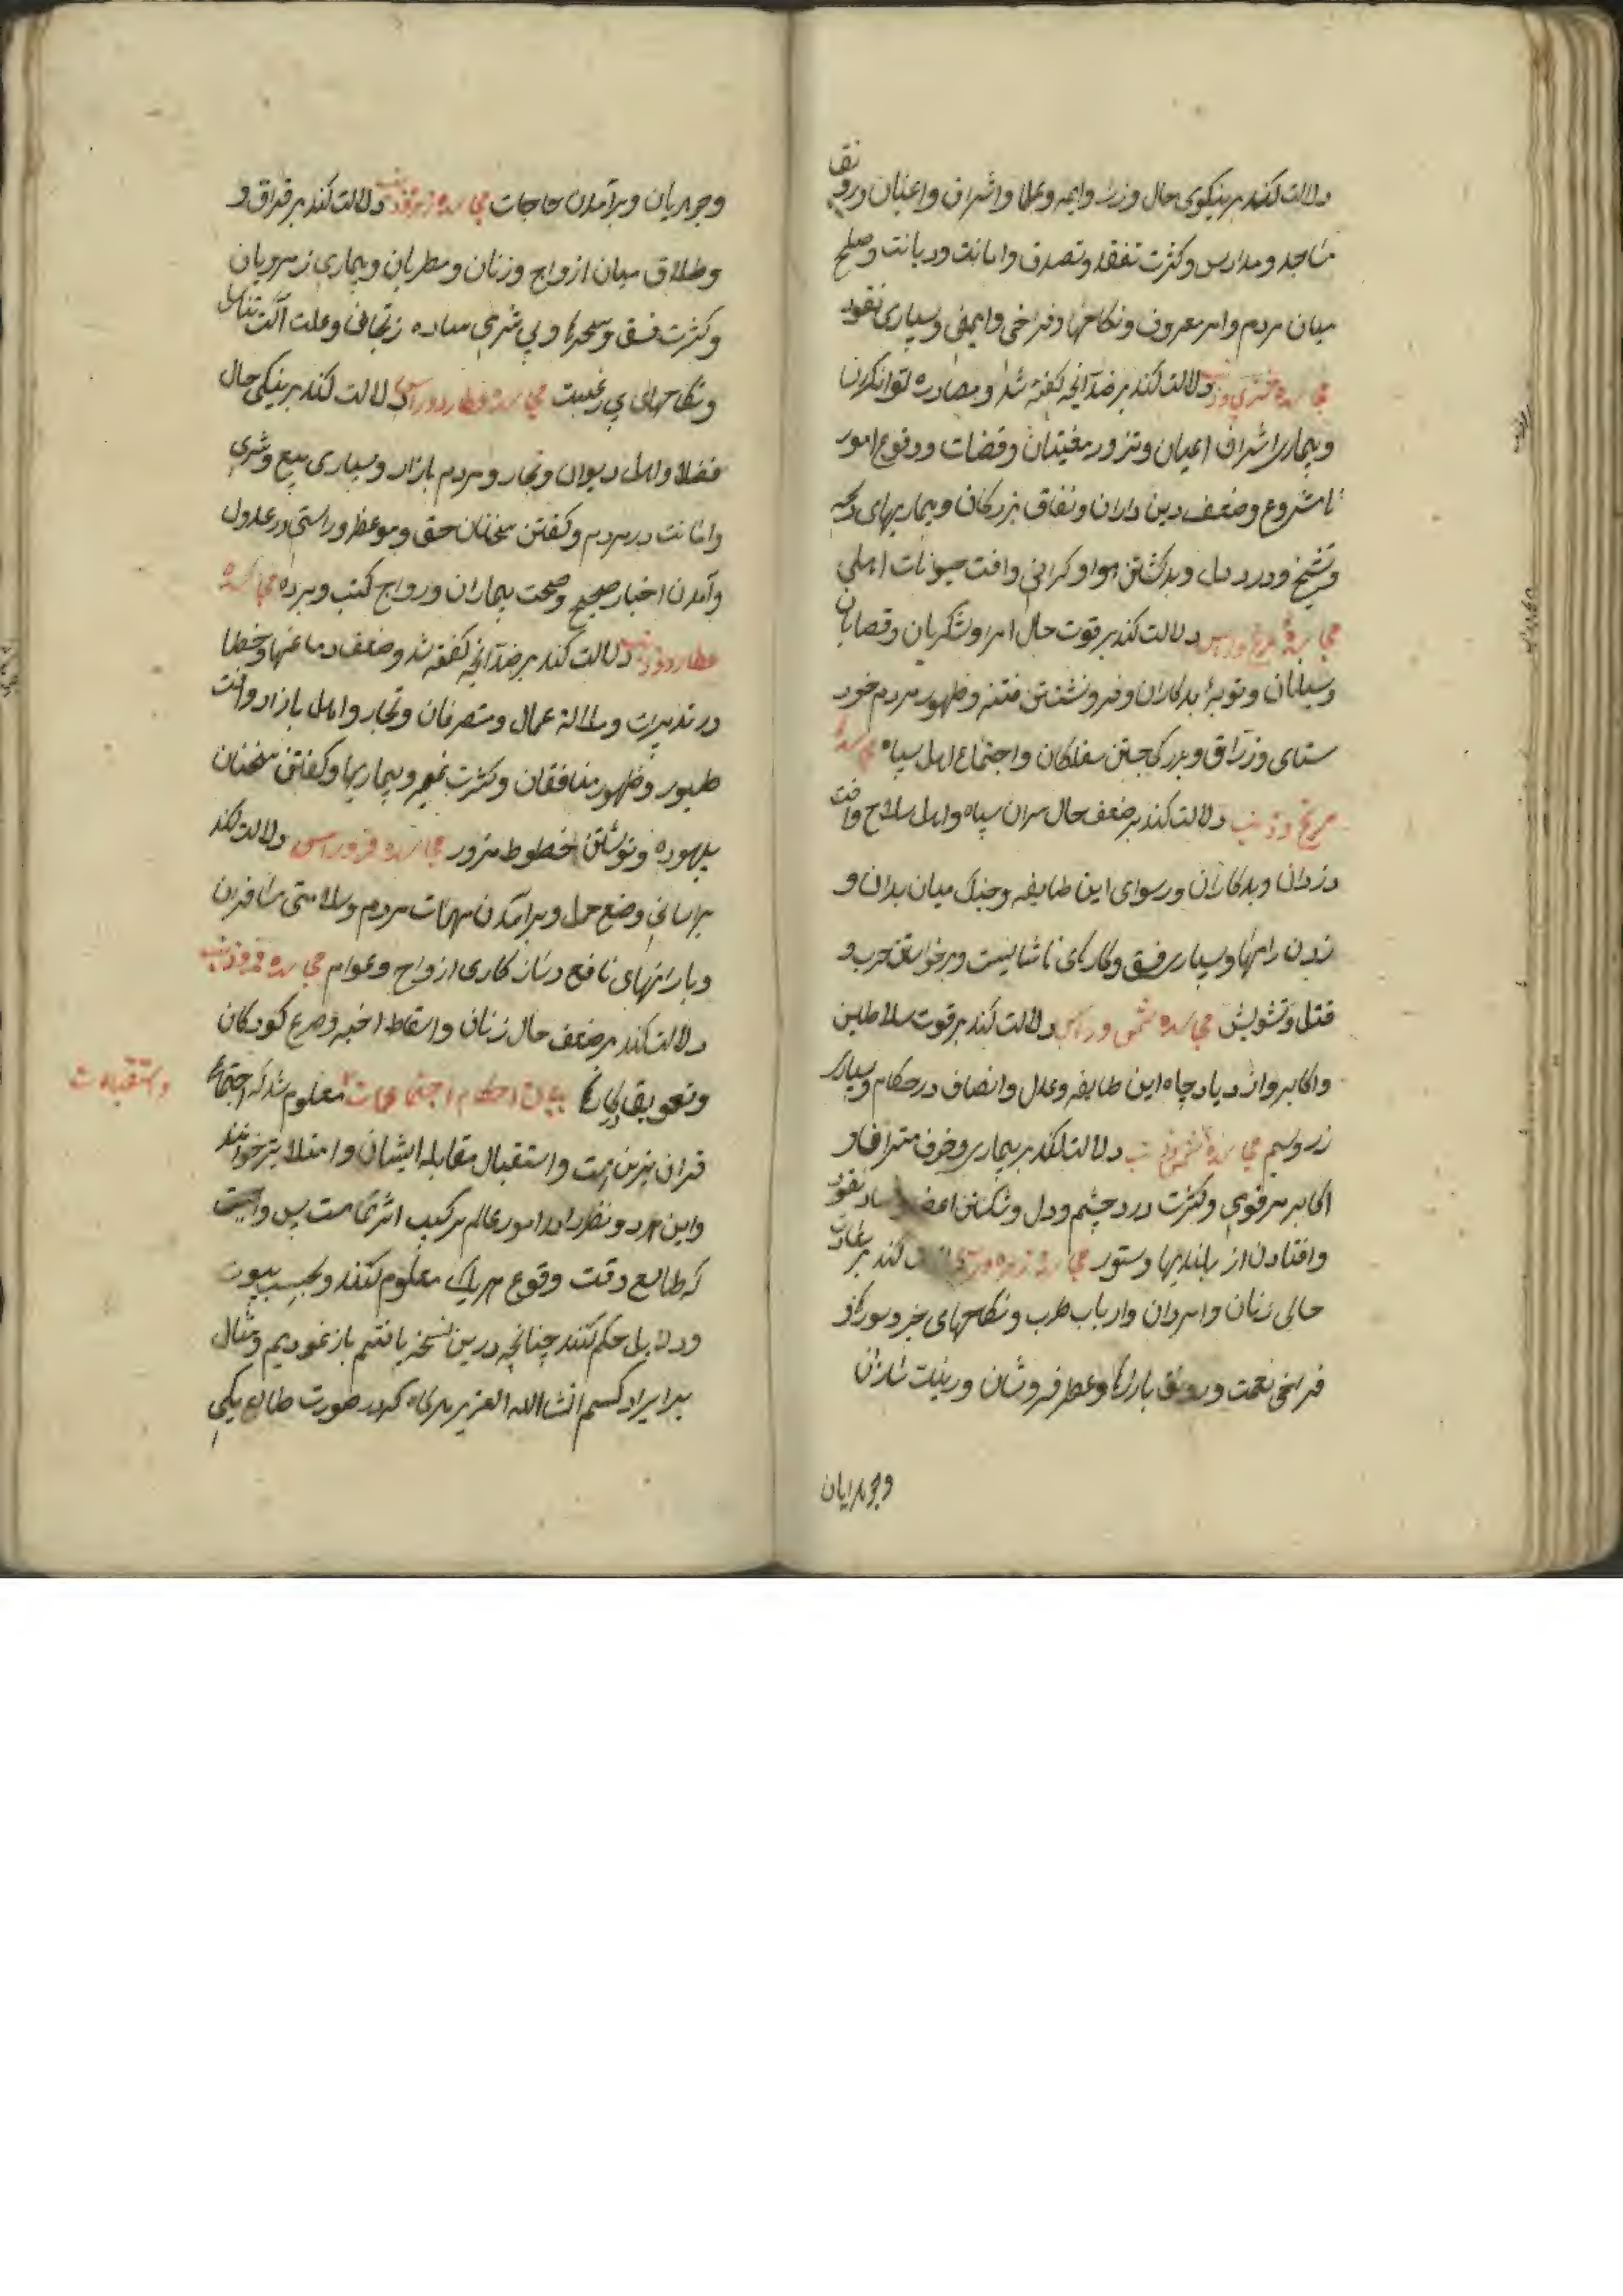 دلالت کند بر نیکوی حال وزرا و ایمه و علما و اشراف و اعیان و رونق
مساجد و مدارس و کثرت تفقد و تصدق و امانت و دیانت و صلح
میان مردم و امر معروف و نکاحها و فراخی و ایمنی و بسیاری نقود
مجاسده مشتری و ذنب دلالت کند بر ضد آنچه گفته شد و مصادره توانگران
و بیماری اشراف اعیان و تزویر مفتیان و قضات و وقوع امور
نامشروع و ضعف دین داران و نفاق بزرکان و بیماریهای
و تشنج و درد دل و بد کشتن هوا و کرانی و افت حیوانات اهلی
مجاسده مریخ و راس دلالت کند بر قوت حال امرا و لشکریان و قصابان
و توبهٔ بدکاران و فرو نشستن فتنه و ظهور مردم خود
ستای و زراق و بزرکی جستن سفلکان و اجتماع اهل سپاه مجاسده
مریخ و ذنب دلالت کند بر ضعف حال سران سپاه و اهل سلاح و افت
دزدان و بدکاران و رسوای این طایفه و جنک میان بدان و
زدن راهها و بسیاری فسق و کارهای ناشایست و برخواستن حرب و
قتل و تشویش مجاسده شمس و راس دلالت کند بر قوت سلاطین
و اکابر و ازدیاد جاه این طایفه و عدل و انصاف در حکام و بسیاری
زر و سیم مجاسده شمس و ذنب دلالت کند بر بیماری و خوف متراف و
اکابر هر قومی و کثرت درد چشم و دل و شکستن اعضا و فساد نقود
و افتادن از بلندیها و ستور مجاسده زهره و راس دلالت کند بر سعادت
حالی زنان و امردان و ارباب طرب و نکاحهای خیر و سورها و
فراخی نعمت و رونق بازارها و عطر فروشان و زینت سازان
وجوهریان
وجوهریان و برآمدن حاجات مجاسده زهره و ذنب دلالت کند بر فراق و
و طلاق میان ازواج و زنان و مطربان و بیماری زهرویان
و کثرت فسق و سحرها و بی شرمی ساده زنخان و علت آلت تناسل
و نکاحهای بی رغبت مجاسده عطارد و راس دلالت کند بر نیکی حال
فضلا و اهل دیوان و تجار و مردم بازار و بسیاری بیع و شری
و امانت در مردم و کفتن سخنان حق و موعظه و راستی در عدول
و آمدن اخبار صحیح و صحت بیماران و رواج کتب و برده مجاسده
عطارد و ذنب دلالت کند بر ضد آنچه کفته شد و ضعف دماغها و خطا
در تدبیرات و ملالة عمال و متصرفان و تجار و اهل بازار و افت
طیور و ظهور منافقان و کثرت و بیماریها و کفتن سخنان
بیهوده و نوشتن خطوط مزور مجاسده قمر و راس دلالت کند
بر اسانی وضع حمل و برآمدن مهمات مردم و سلامتی مسافران
و بارانهای نافع و سازکاری ازواج و عوام مجاسده قمر و ذنب
دلالت کند بر ضعف حال زنان و اسقاط اجنه و صرع کودکان
و تعویق کارها بیان احکام اجتماعات معلوم شد که اجتماع
و استقبالات
قران نیرین است و استقبال مقابله ایشان و امتلا نیز خوانند
و این هر دو نظر را در امور عالم ترکیب اثر تمامست پس واجبست
که طالع وقت وقوع هر یک معلوم کنند و بحسب بیوت
و دلایل حکم کنند چنانچه درین نسخه یافتیم باز نمودیم و مثال
برا ایراد کنیم انشاالله العزیز هرکاه که در صورت طالع یکی